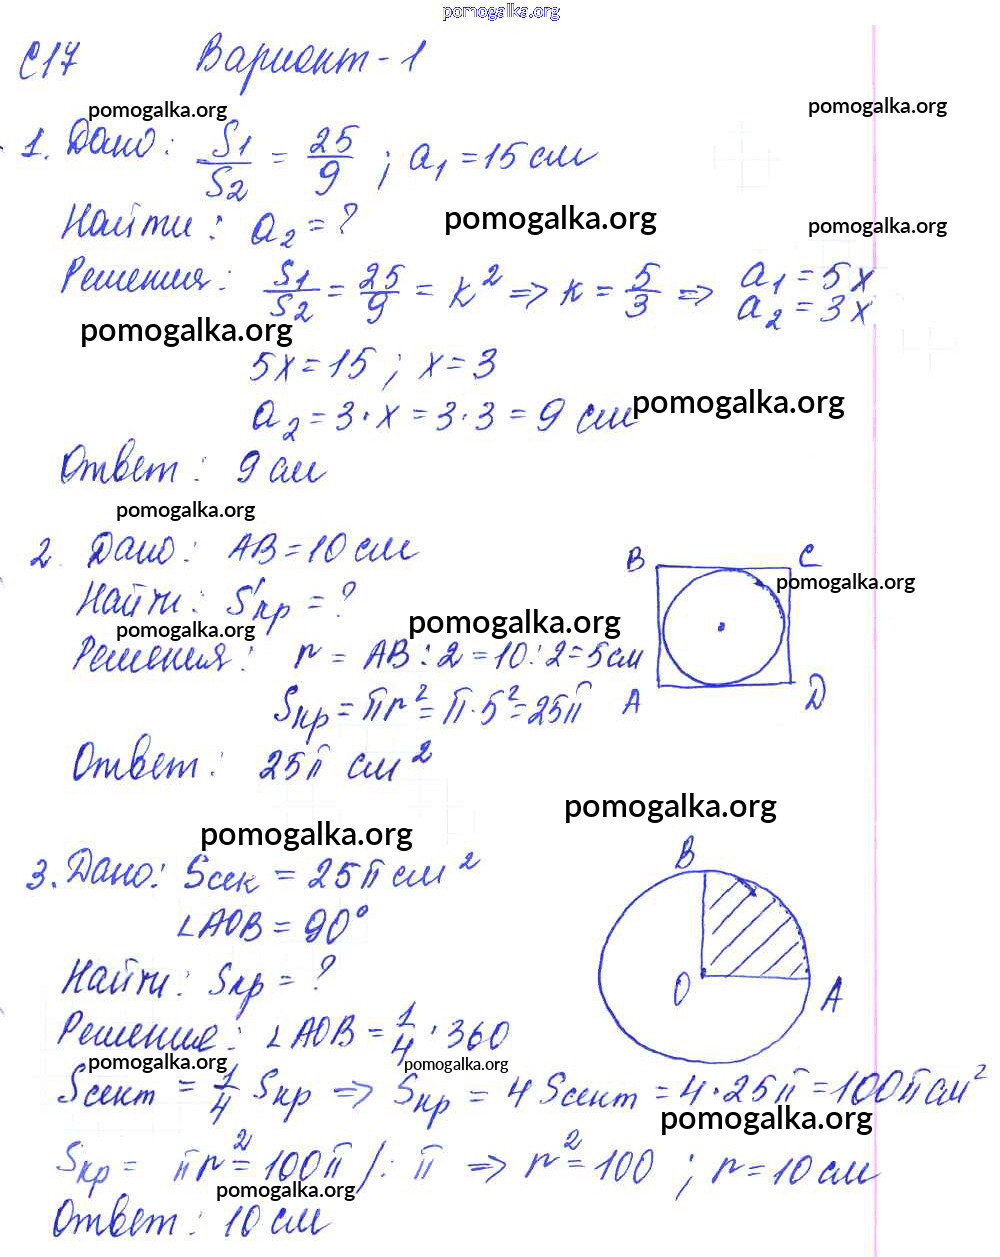 pomogalka.org
С17 Вариант-1
pomogalka.org pomogalka.org
1. Дано: S1/S2 = 25/9 ; a1 = 15 см
Найти: a2 = ? pomogalka.org pomogalka.org
Решения: S1/S2 = 25/9 = k² => k = 5/3 => a1 = 5x
a2 = 3x
pomogalka.org
5x = 15 ; x = 3
a2 = 3·x = 3·3 = 9 см pomogalka.org
Ответ: 9 см
pomogalka.org
2. Дано: AB = 10 см B C
pomogalka.org
Найти: Sкр = ?
pomogalka.org pomogalka.org
Решения: r = AB : 2 = 10 : 2 = 5 см
Sкр = πr² = π·5² = 25π A D
Ответ: 25π см²
pomogalka.org
pomogalka.org
3. Дано: Sсек = 25π см² B
∠AOB = 90°
Найти: Sкр = ? O A
Решение: ∠AOB = 1/4 · 360
pomogalka.org pomogalka.org
Sсект = 1/4 Sкр => Sкр = 4 Sсект = 4·25π = 100π см²
pomogalka.org
Sкр = πr² = 100π /: π => r² = 100 ; r = 10 см
pomogalka.org
Ответ: 10 см